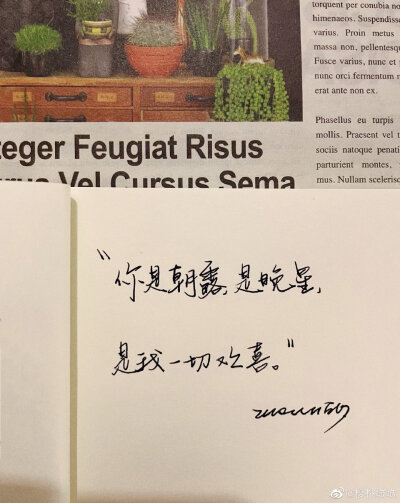 torquent per conubia no
himenaeos. Suspendisse
varius. Proin metus
massa non, pellentesqu
Fusce varius, nunc et
nunc orci fermentum
erat ante non ex.
Phasellus eu turpis
mollis. Praesent vel t
sociis natoque penati
parturient montes,
mus. Nullam scelerisc
teger Feugiat Risus
Vel Cursus Sema
“你是朝露,是晚星,
是我一切欢喜。”